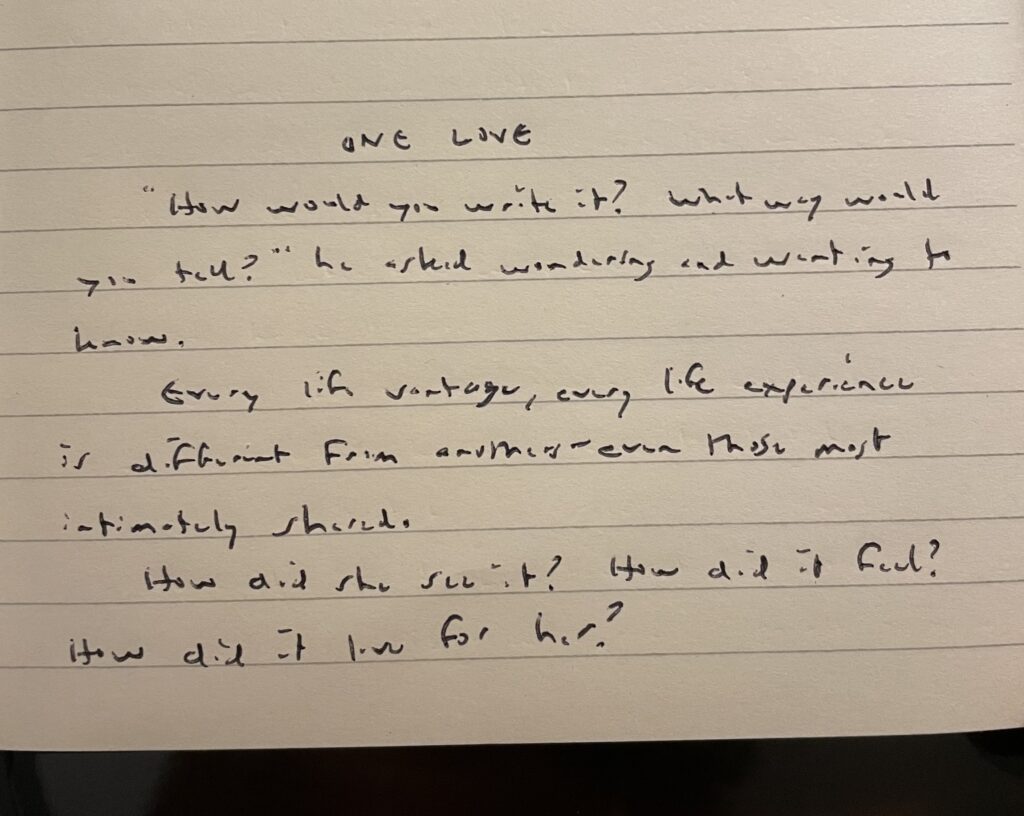 ONE LOVE
"How would you write it? What way would
you tell?" he asked wondering and wanting to
know.
Every life vantage, every life experience
is different from another - even those most
intimately shared.
How did she see it? How did it feel?
How did it live for her?